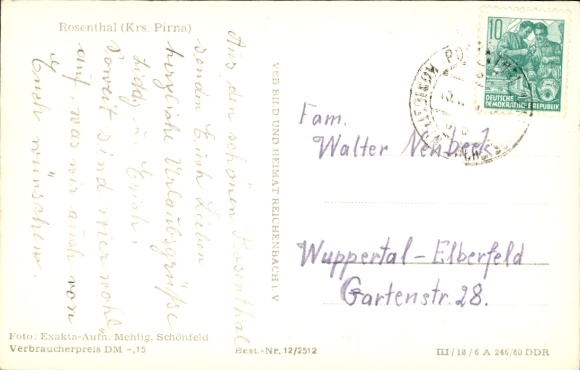 Rosenthal (Krs. Pirna)
Aus den schönen Rosenthal
senden Euch Lieben
herzliche Urlaubsgrüße
u. Erich!
soweit sind wir wohl
auf, was wir auch von
Euch wünschen.
Foto: Exakta-Aufn. Mehlig, Schönfeld
Verbraucherpreis DM -,15
VEB BILD UND HEIMAT REICHENBACH i. V
Best.-Nr. 12/2512
10
DEUTSCHE
DEMOKRATISCHE REPUBLIK
Fam.
Walter Neubeck
Wuppertal-Elberfeld
Gartenstr. 28.
III/18/6 A 246/60 DDR